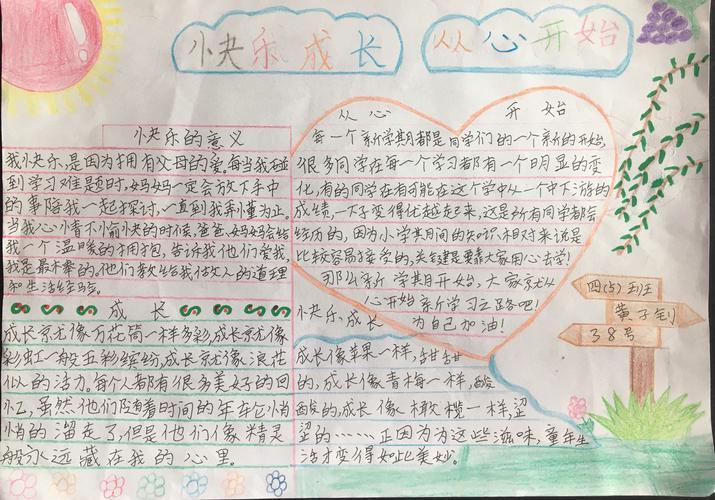 小快乐成长
从心开始
小快乐的意义
我小快乐,是因为拥有父母的爱。每当我碰
到学习难是题时,妈妈一定会放下手中
的事陪我一起探讨,一直到我弄懂为止。
当我心情有不愉快的时候,爸爸,妈妈会给
我一个温暖的拥抱,告诉我他们爱我,
我是最棒的,他们教给我做人的道理
和生活经验。
成长
成长京尤像万花筒一样多彩,成长京尤像
彩虹一般五彩缤纷,成长京尤像浪花
似的活力。每个人都有很多美好的回
忆,虽然他们随着时间的年车它悄
悄的溜走了,但是他们像精灵
般永远藏在我的心里。
从心开始
每一个新学期都是同学们的一个新的开始,
很多同学在每一个学习都有一个明显的变
化,有的同学在有可能在这个学中从一个中下游的
成绩,一下子变得优越起来,这是所有同学都会
经历的,因为小学期间的知识相对来说是
比较容易接学的,关键是要靠大家用心去学!
那么新学期开始,大家京尤从
心开始新学习之路吧!
小快乐、成长 为自己加油!
成长像苹果一样,甜甜
的,成长像青梅一样,酸
酸的,成长像橄榄一样,涩
涩的……正因为为这些滋味,童年生
活才变得如此美妙。
四(5)班
38号